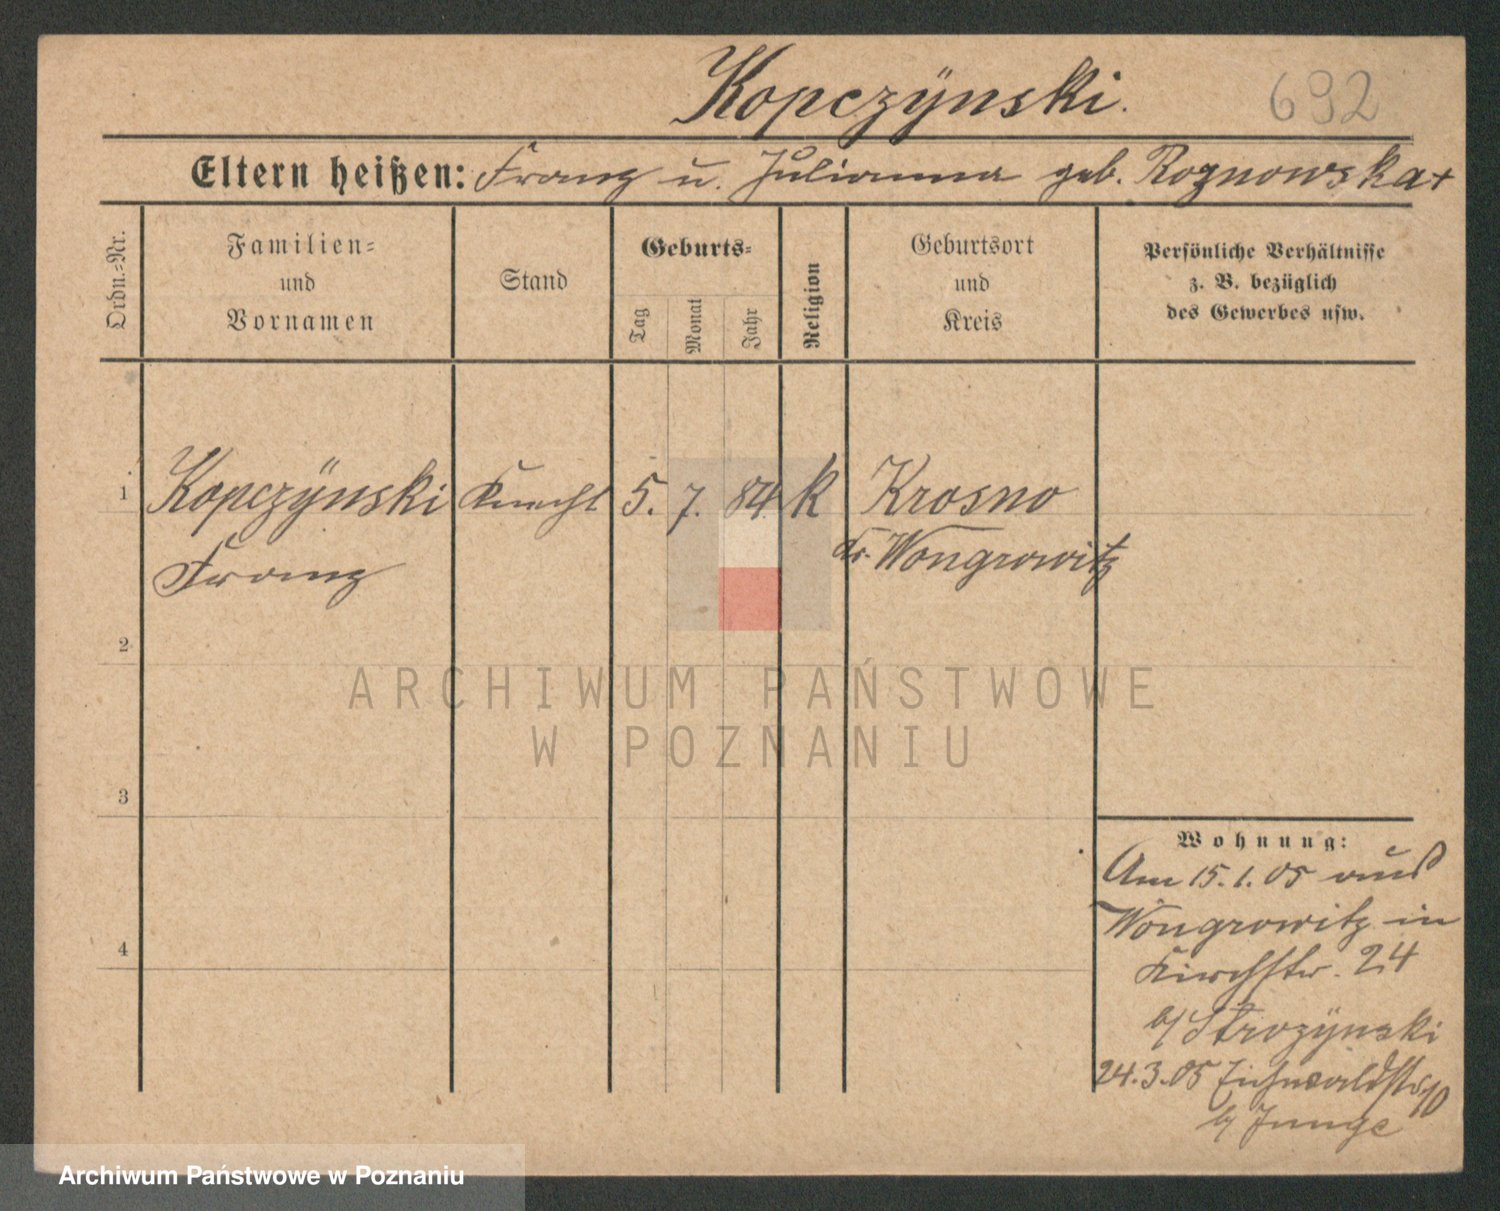 Kopczÿnski.
692
Eltern heißen: Franz u. Julianna geb. Roznowska +
Ordn.=Nr.
Familien=
und
Vornamen
Stand
Geburts=
Tag
Monat
Jahr
Religion
Geburtsort
und
Kreis
Persönliche Verhältnisse
z. B. bezüglich
des Gewerbes usw.
1 Kopczÿnski Knecht 5. 7. 84. k Krosno
Franz Kr. Wongrowitz
2
3
4
Wohnung:
Am 15.1.05 aus
Wongrowitz in
Kirchstr. 24
b/ Strozÿnski
24.3.05 Eichwaldstr. 10
b/ Junge
ARCHIWUM PAŃSTWOWE
W POZNANIU
Archiwum Państwowe w Poznaniu